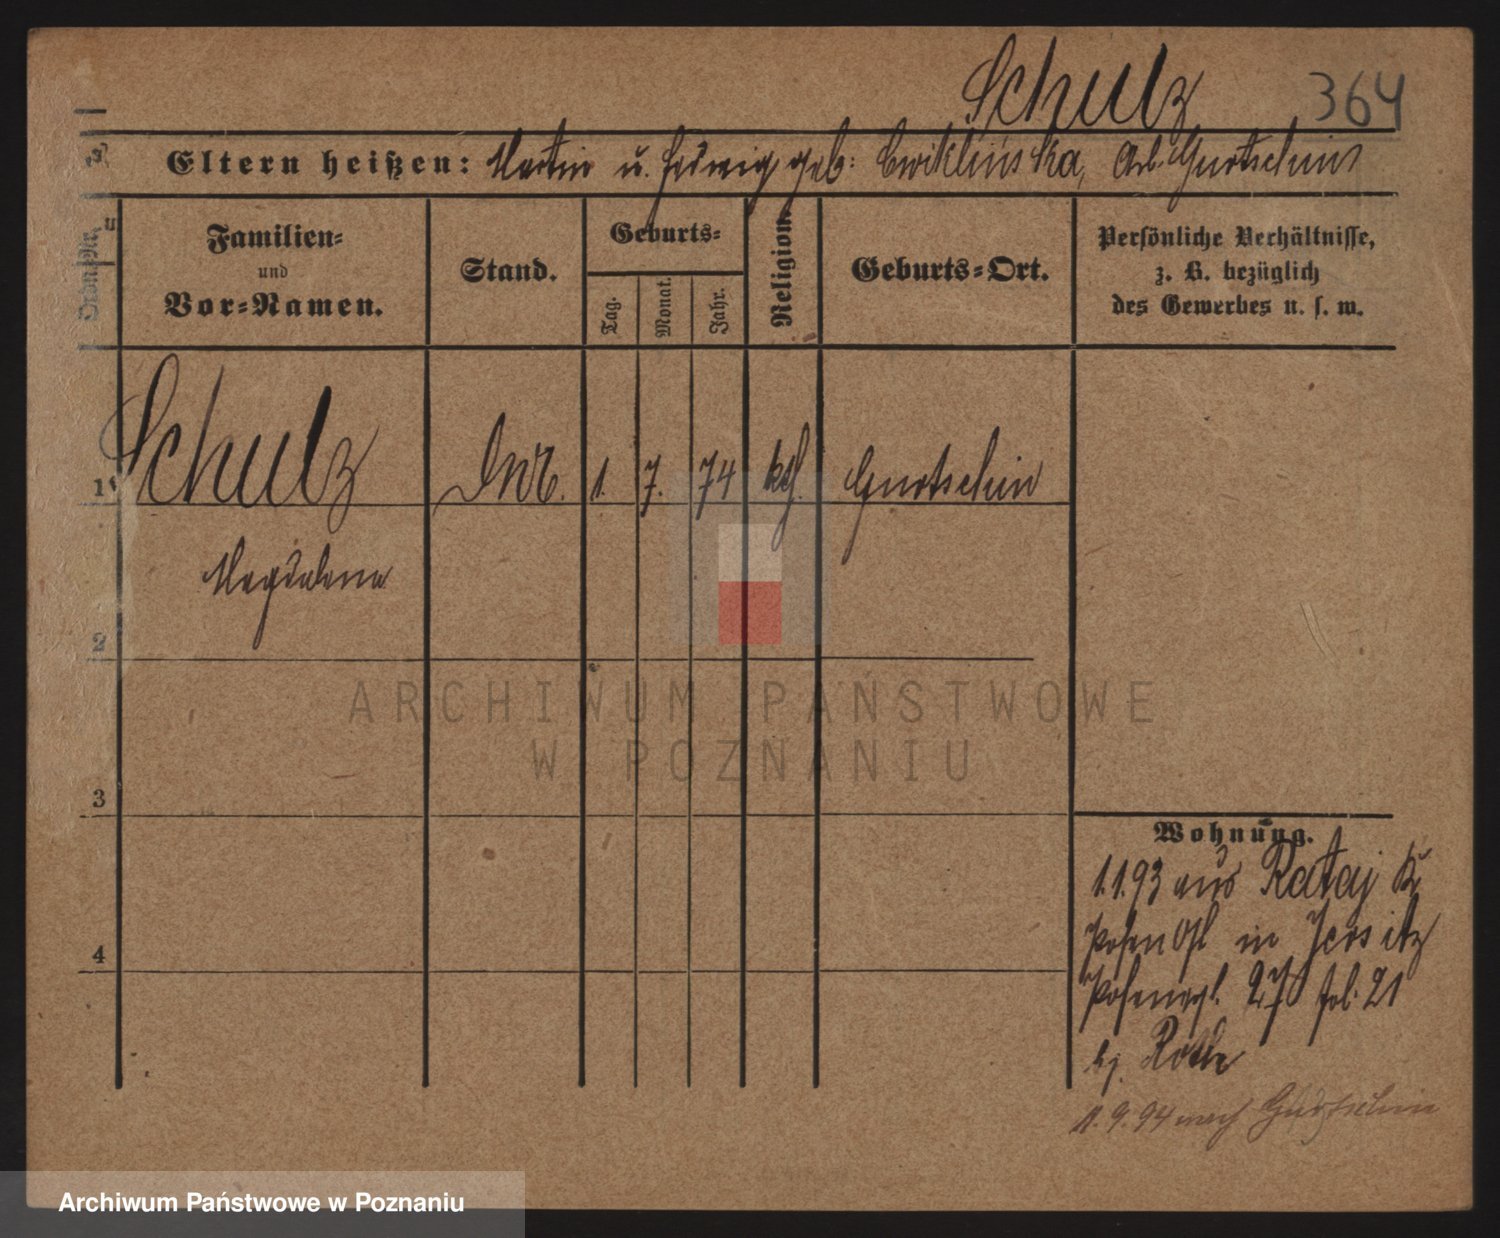 Schulz 364
Eltern heißen: Martin u. Hedwig geb: Cwiklinska, Arb. Gurtschin
Ordn. Nr.
Familien-
und
Vor-Namen.
Stand.
Geburts-
Tag.
Monat.
Jahr.
Religion.
Geburts-Ort.
Persönliche Verhältnisse,
z. B. bezüglich
des Gewerbes u. s. w.
1 Schulz 1. 7. 74 kth. Gurtschin
Magdalena
2
3
4
Wohnung.
1.1.93 aus Rataj Kr
Posen Ost in Jersitz
Posenerst. 27 Fol. 21
bj. Rothe
1.9.94 nach Gurtschin
ARCHIWUM PAŃSTWOWE
W POZNANIU
Archiwum Państwowe w Poznaniu